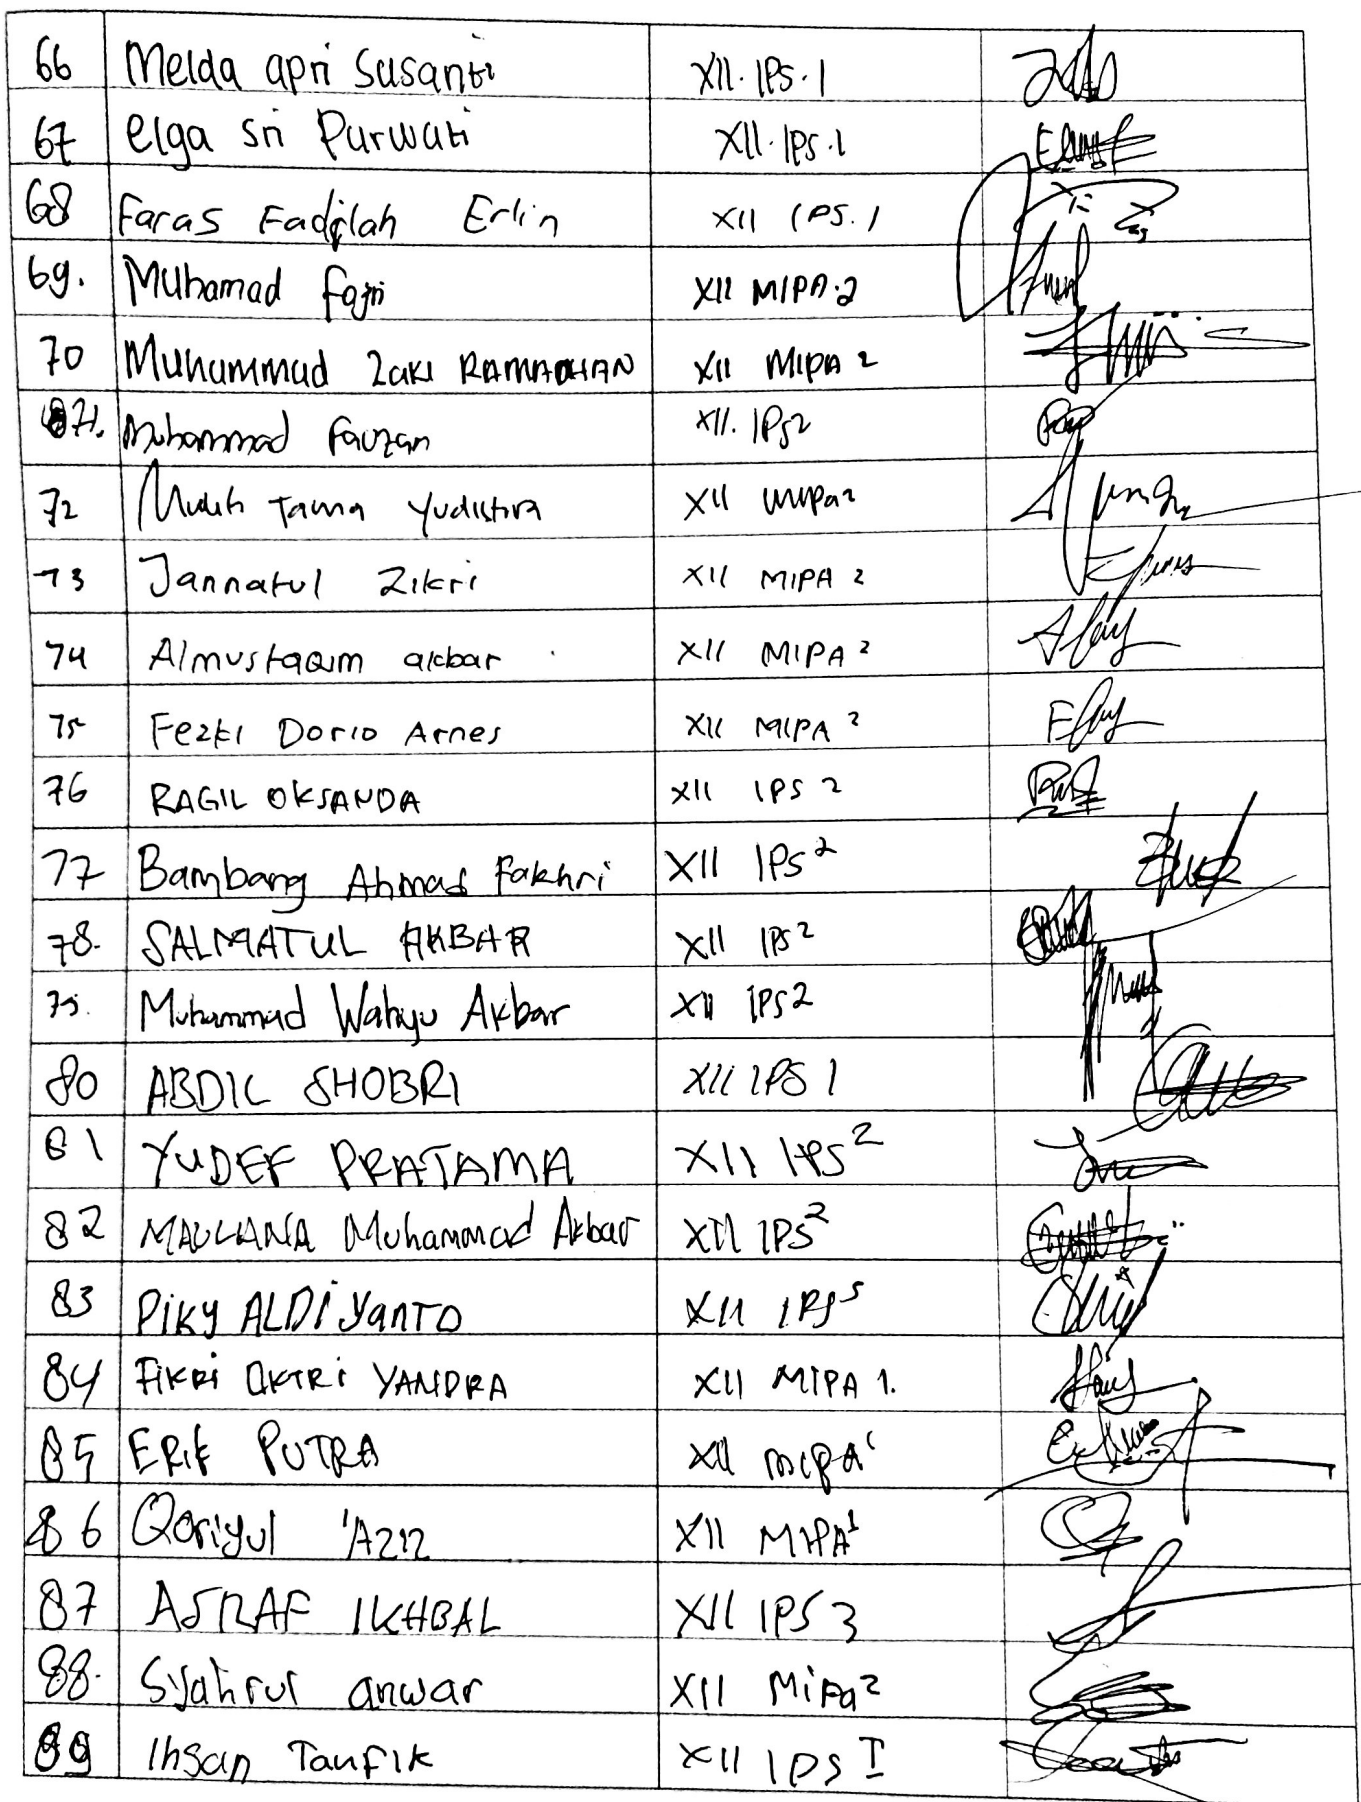 66 Melda apri Susanti XII. IPS. 1
67 elga sri Purwati XII. IPS. 1
68 Faras Fadjlah Erlin XII IPS. 1
69. Muhamad fajri XII MIPA.2
70 Muhammad Zaki RAMADHAN XII MIPA 2
71. Muhammad Fauzan XII. IPS2
72 Tama Yudistira XII MIPa2
73 Jannatul Zikri XII MIPA 2
74 Almustaqim akbar XII MIPA 2
75 Fezki Dorio Arnes XII MIPA 2
76 RAGIL OKSANDA XII IPS 2
77 Bambang Ahmad Fakhri XII IPS 2
78. SALMATUL AKBAR XII IPS 2
79. Muhammad Wahyu Akbar XII IPS2
80 ABDIL SHOBRI XII IPS 1
81 YUDEF PRATAMA XII IPS 2
82 MAULANA Muhammad Akbar XII IPS 2
83 PiKy ALDiYanTO XII IPS
84 FiKRi OKTRi YANDRA XII MIPA 1.
85 ERiK PUTRA XII MIPA 1
86 Qoriyul 'AZIZ XII MIPA 1
87 ASRAF IKHBAL XII IPS 3
88. Syahrul anwar XII MiPa2
89 Ihsan Taufik XII IPS I